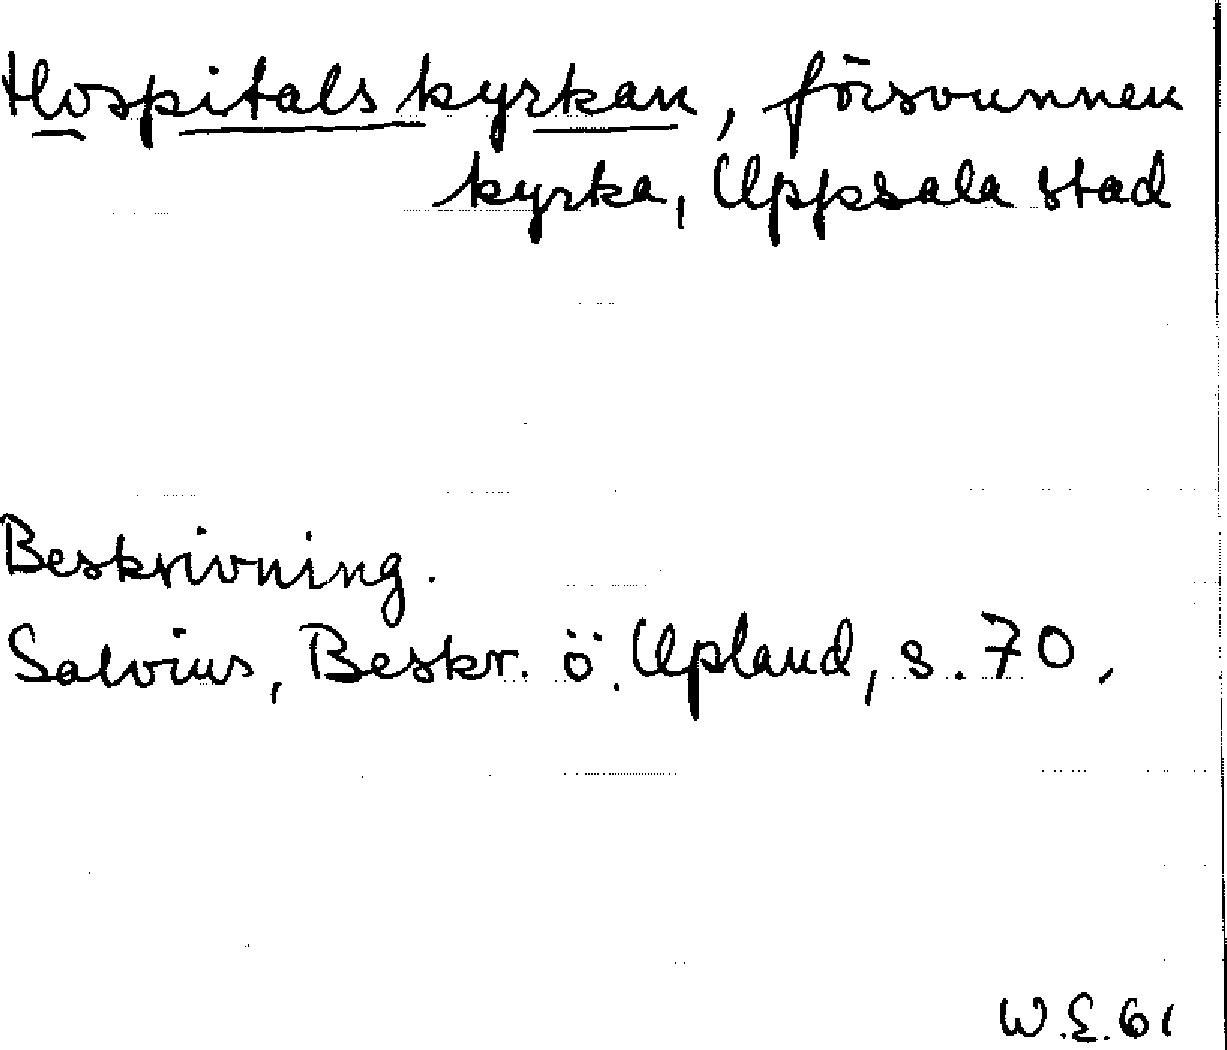 Hospitalskyrkan, försvunnen
kyrka, Uppsala stad
Beskrivning.
Salvius, Beskr. ö. Upland, s. 70.
W.E. 61